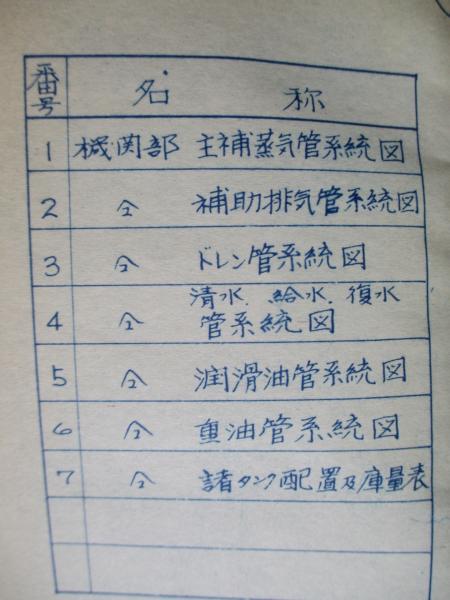 番号 名称
1 機関部 主補蒸気管系統図
2 仝 補助排気管系統図
3 仝 ドレン管系統図
清水.給水.復水
4 仝 管系統図
5 仝 潤滑油管系統図
6 仝 重油管系統図
7 仝 諸タンク配置及庫量表